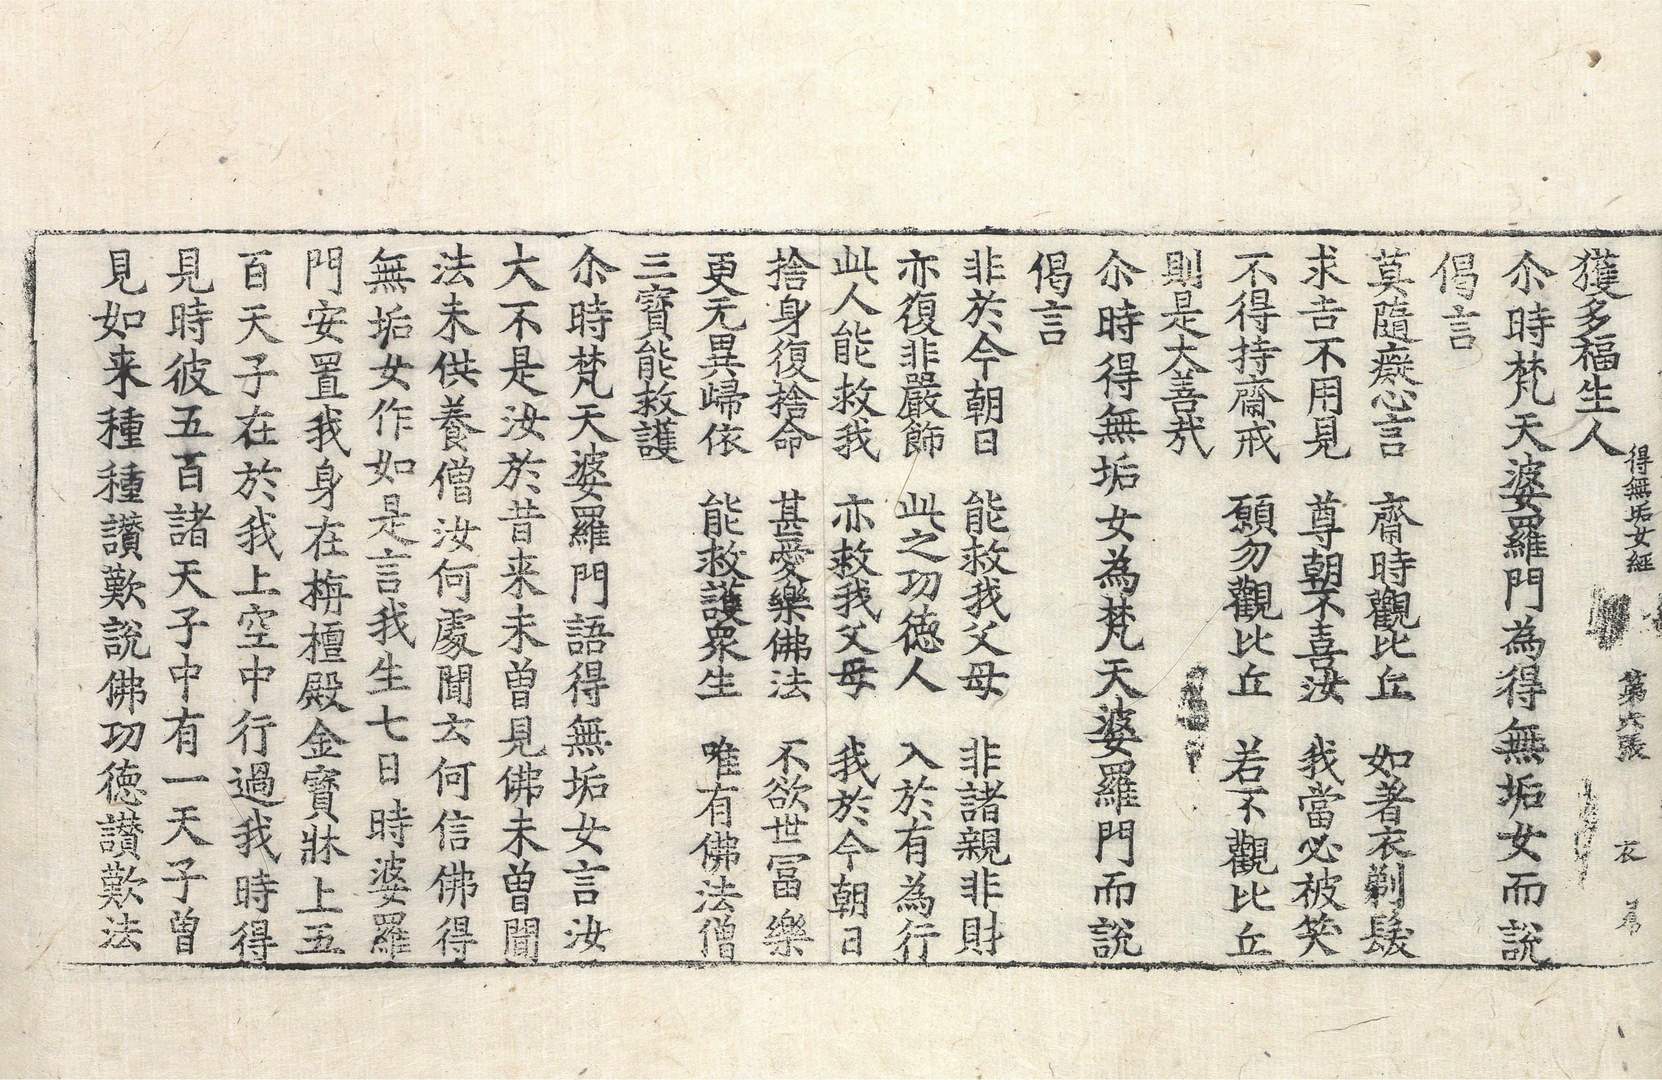 得無垢女經 第六張 衣
獲多福生人
尒時梵天婆羅門為得無垢女而說
偈言
莫隨癡心言 齋時觀比丘 如著衣剃髮
求吉不用見 尊朝不喜汝 我當必被笑
不得持齋戒 願勿觀比丘 若不觀比丘
則是大善㢤
尒時得無垢女為梵天婆羅門而說
偈言
非於今朝日 能救我父母 非諸親非財
亦復非嚴飾 此之功德人 入於有為行
此人能救我 亦救我父母 我於今朝日
捨身復捨命 甚愛樂佛法 不欲世冨樂
更无異歸依 能救護眾生 唯有佛法僧
三寶能救護
尒時梵天婆羅門語得無垢女言汝
大不是汝於昔来未曾見佛未曾聞
法未供養僧汝何處聞云何信佛得
無垢女作如是言我生七日時婆羅
門安置我身在栴檀殿金寶牀上五
百天子在於我上空中行過我時得
見時彼五百諸天子中有一天子曾
見如来種種讃歎說佛功德讃歎法